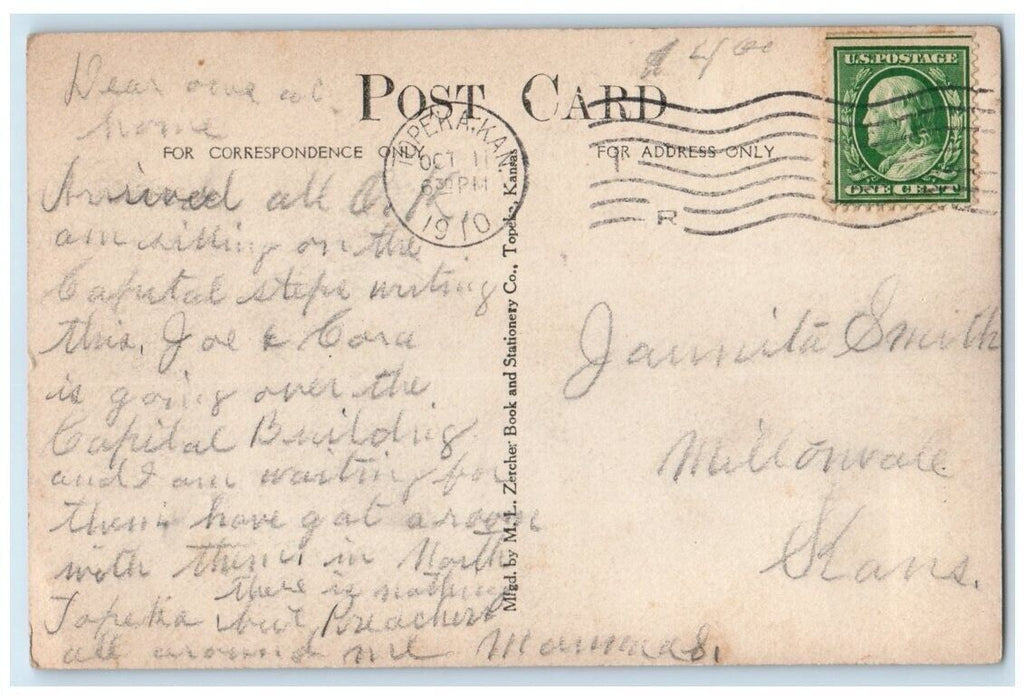 Dear one at
home
Arrived all O.K
am sitting on the
Capital steps writing
this, Joe & Cora
is going over the
Capital Building
and I am waiting for
them have got a room
with them in North
Topeka there is nothing
but Preachers
all around me Mamma S.
POST CARD
FOR CORRESPONDENCE ONLY
FOR ADDRESS ONLY
TOPEKA, KAN.
OCT 11
6 PM
1910
R
U.S. POSTAGE
ONE CENT
Mfgd. by M. L. Zercher Book and Stationery Co., Topeka, Kansas
Jaunita Smith
Miltonvale
Kans.